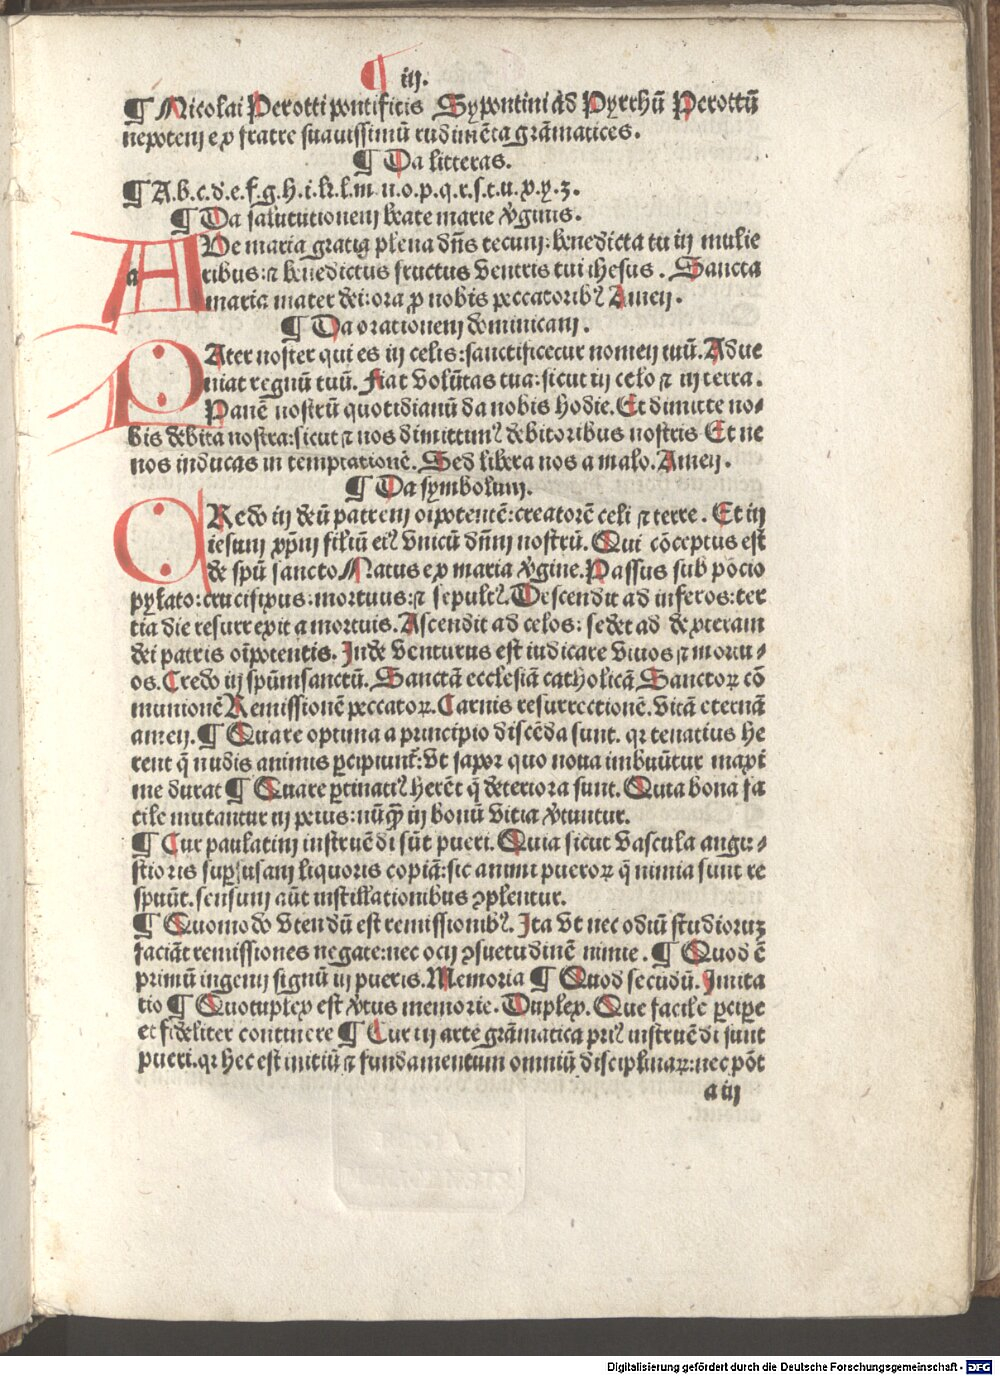 ¶ iij.
¶ Nicolai Perotti pontificis Sypontini ad Pyrrhū Perottū
nepotem ex fratre suauissimū rudimēta grāmatices.
¶ Da litteras.
¶ A.b.c.d.e.f.g.h.i.k.l.m.n.o.p.q.r.s.t.u.x.y.z.
¶ Da salutationem beate marie v̄ginis.
AVe maria gratia plena dn̄s tecum: benedicta tu in mulie
ribus: ⁊ benedictus fructus ventris tui ihesus. Sancta
maria mater dei: ora ꝓ nobis peccatoribꝰ Amen.
¶ Da orationem dominicam.
PAter noster qui es in celis: sanctificetur nomen tuū. Adue
niat regnū tuū. Fiat volūtas tua: sicut in celo ⁊ in terra.
Panē nostrū quotidianū da nobis hodie. Et dimitte no⸗
bis debita nostra: sicut ⁊ nos dimittimꝰ debitoribus nostris Et ne
nos inducas in temptationē. Sed libera nos a malo. Amen.
¶ Da symbolum.
CRedo in deū patrem oīpotentē: creatorē celi ⁊ terre. Et in
iesum xp̄m filiū eiꝰ vnicū dn̄m nostrū. Qui cōceptus est
de spū sancto Natus ex maria v̄gine. Passus sub pōcio
pylato: crucifixus: mortuus: ⁊ sepultꝰ. Descendit ad inferos: ter
tia die resurrexit a mortuis. Ascendit ad celos: sedet ad dexteram
dei patris oīpotentis. Inde venturus est iudicare viuos ⁊ mortu⸗
os. Credo in spūmsanctū. Sanctā ecclesiā catholicā Sanctoꝝ cō
munionē Remissionē peccatoꝝ. Carnis resurrectionē. vitā eternā
amen. ¶ Quare optima a principio discēda sunt. qꝛ tenatius he
rent q̄ nudis animis ꝑcipiunt̄: vt sapor quo noua imbuūtur maxi
me durat ¶ Quare ꝑtinatiꝰ herēt q̄ deteriora sunt. Quia bona fa
cile mutantur in peius: nūꝙ̄ in bonū vitia v̄tuntur.
¶ Cur paulatim instruēdi sūt pueri. Quia sicut vascula angu⸗
stioris suꝑfusam liquoris copiā: sic animi pueroꝝ q̄ nimia sunt re
spuūt. sensum aūt instillationibus ꝯplentur.
¶ Quomodo vtendū est remissionibꝰ. Ita vt nec odiū studioruꝫ
faciāt remissiones negate: nec ocij ꝯsuetudinē nimie. ¶ Quod ē
primū ingenij signū in pueris. Memoria ¶ Quod secūdū. Imita
tio ¶ Quotuplex est v̄tus memorie. Duplex. Que facile ꝑcipe
et fideliter continere ¶ Cur in arte grāmatica priꝰ instruēdi sunt
pueri. qꝛ hec est initiū ⁊ fundamentum omniū disciplinaꝝ: nec pōt
a iij
Digitalisierung gefördert durch die Deutsche Forschungsgemeinschaft - DFG